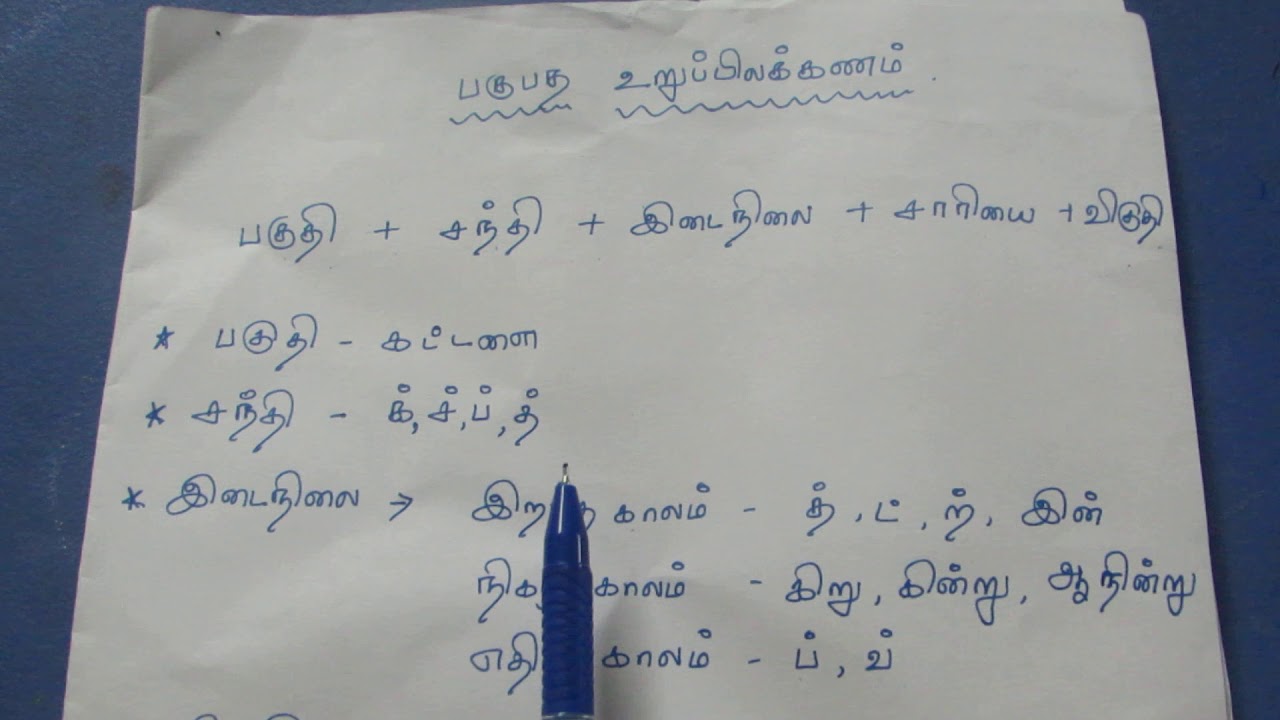 பகுபத உறுப்பிலக்கணம்
பகுதி + சந்தி + இடைநிலை + சாரியை + விகுதி
* பகுதி - கட்டளை
* சந்தி - க், ச், ப், த்
* இடைநிலை → காலம் - த், ட், ற், இன்
காலம் - கிறு, கின்று, ஆநின்று
காலம் - ப், வ்